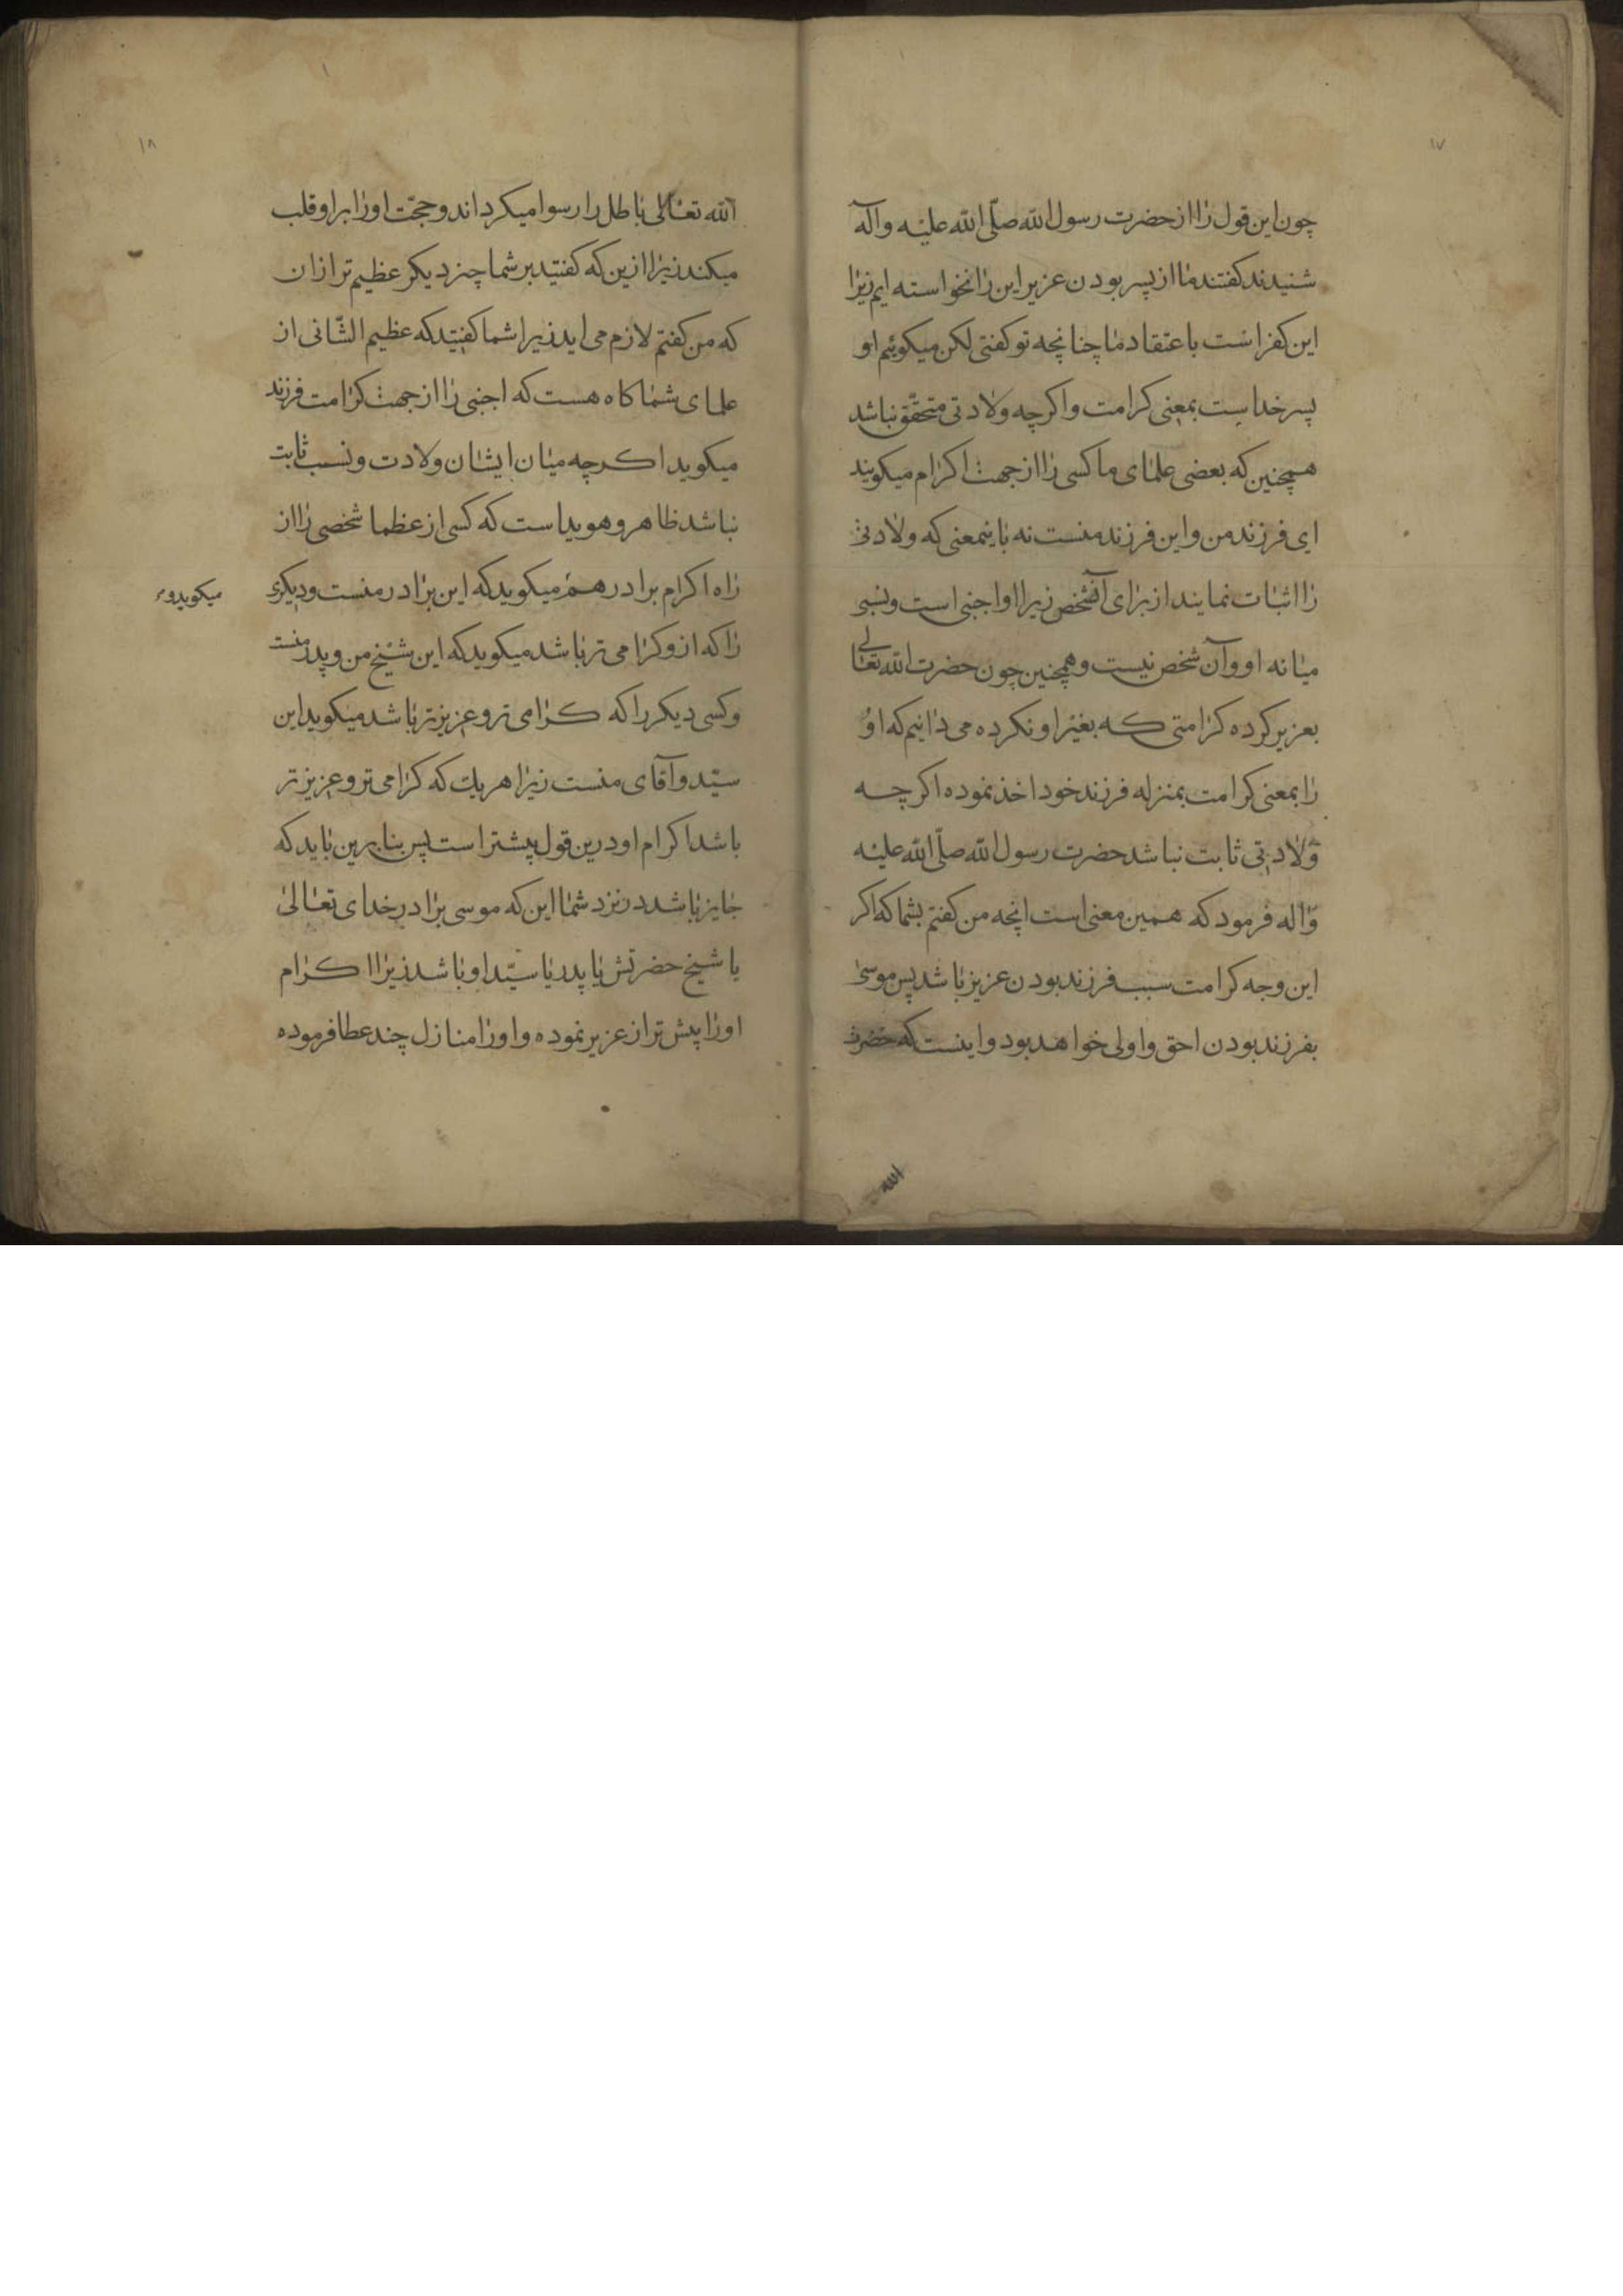 ۱۷
چون این قول را از حضرت رسول الله صلّی الله علیه وآله
شنیدند کفتند ما از پسر بودن عزیر این را نخواسته ایم زیرا
این کفر است باعتقاد ما چنانچه تو کفتی لکن میکوئیم او
پسر خداست بمعنی کرامت واکرچه ولادتی متحقّق نباشد
همچنین که بعضی علمای ما کسی را از جهت اکرام میکویند
ای فرزند من واین فرزند منست نه باینمعنی که ولادتی
را اثبات نمایند از برای آنشخص زیرا او اجنبی است ونسبی
میانه او وآن شخص نیست وهمچنین چون حضرت الله تعالی
بعزیر کرده کرامتی که بغیر او نکرده می دانیم که او
را بمعنی کرامت بمنزله فرزند خود اخذ نموده اکرچه
ولادتی ثابت نباشد حضرت رسول الله صلّی الله علیه
واله فرمود که همین معنی است انچه من کفتم بشما که اکر
این وجه کرامت سبب فرزند بودن عزیز باشد پس موسی
بفرزند بودن احق واولی خواهد بود واینست که حضرت
الله
۱۸
الله تعالی باطل را رسوا میکرداند وحجّت اورا بر او قلب
میکند زیرا ازین که کفتید بر شما چیز دیکر عظیم تر از ان
که من کفتم لازم می اید زیرا شما کفتید که عظیم الشّانی از
علمای شما کاه هست که اجنبی را از جهت کرامت فرزند
میکوید اکرچه میان ایشان ولادت ونسب ثابت
نباشد ظاهر وهویداست که کسی از عظما شخصی را از
راه اکرام برادر هم میکوید که این برادر منست ودیکری
میکویدو
را که ازو کرامی تر باشد میکوید که این شیخ من وپدر منست
وکسی دیکر را که کرامی تر وعزیزتر باشد میکوید این
سیّد وآقای منست زیرا هر یك که کرامی تر وعزیزتر
باشد اکرام او درین قول پیشتر است پس بنابرین باید که
جایز باشد در نزد شما این که موسی برادر خدای تعالی
یا شیخ حضرتش یا پدر یا سیّد او باشد زیرا اکرام
اورا پیش تر از عزیر نموده واورا منازل چند عطا فرموده